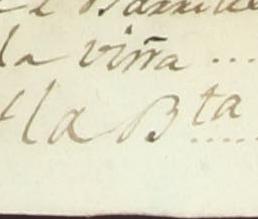 la viña ...
la Bta .....